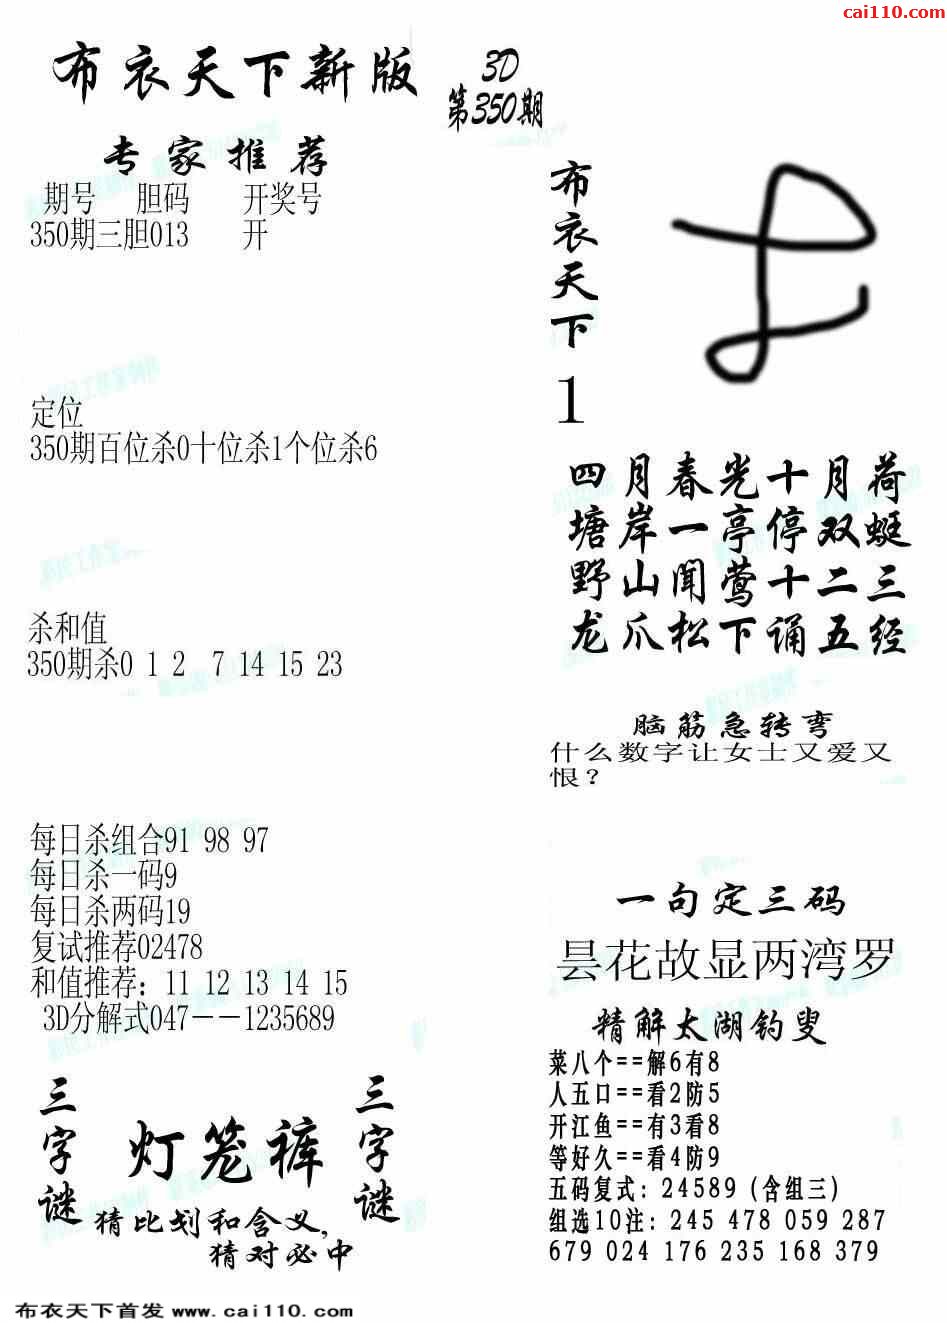 cai110.com
布衣天下新版
3D
第350期
专家推荐
期号 胆码 开奖号
350期三胆013 开
定位
350期百位杀0十位杀1个位杀6
杀和值
350期杀0 1 2 7 14 15 23
每日杀组合91 98 97
每日杀一码9
每日杀两码19
复试推荐02478
和值推荐: 11 12 13 14 15
3D分解式047--1235689
三字谜
灯笼裤
三字谜
猜比划和含义,
猜对必中
布衣天下
1
四月春光十月荷
塘岸一亭停双蜓
野山闻莺十二三
龙爪松下诵五经
脑筋急转弯
什么数字让女士又爱又
恨?
一句定三码
昙花故显两湾罗
精解太湖钓叟
菜八个==解6有8
人五口==看2防5
开江鱼==有3看8
等好久==看4防9
五码复式: 24589 (含组三)
组选10注: 245 478 059 287
679 024 176 235 168 379
布衣天下首发 www.cai110.com